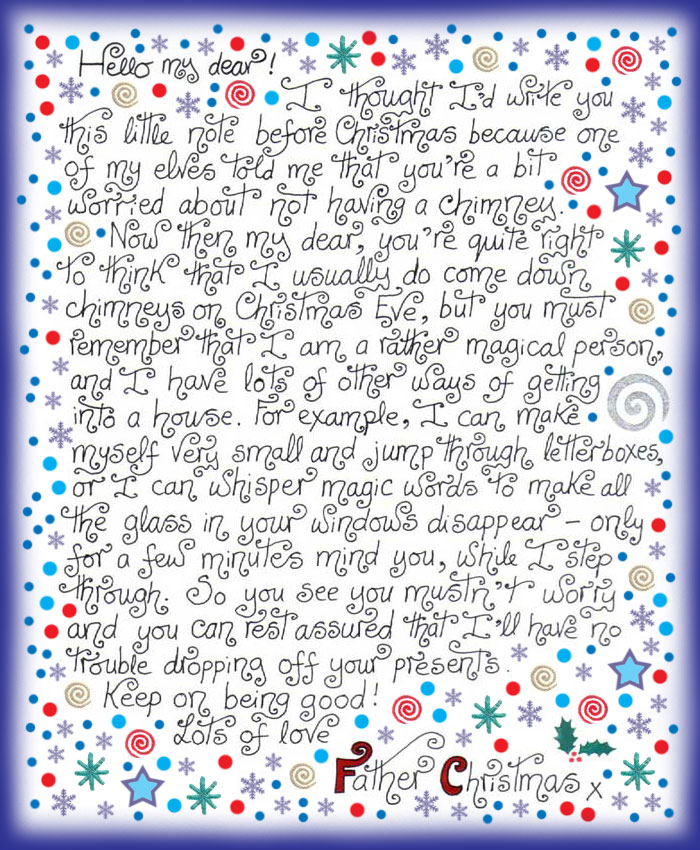 Hello my dear!
I thought I'd write you
this little note before Christmas because one
of my elves told me that you're a bit
worried about not having a chimney.
Now then my dear, you're quite right
to think that I usually do come down
chimneys on Christmas Eve, but you must
remember that I am a rather magical person,
and I have lots of other ways of getting
into a house. For example, I can make
myself very small and jump through letterboxes,
or I can whisper magic words to make all
the glass in your windows disappear – only
for a few minutes mind you, while I step
through. So you see you mustn't worry
and you can rest assured that I'll have no
trouble dropping off your presents.
Keep on being good!
Lots of love
Father Christmas x